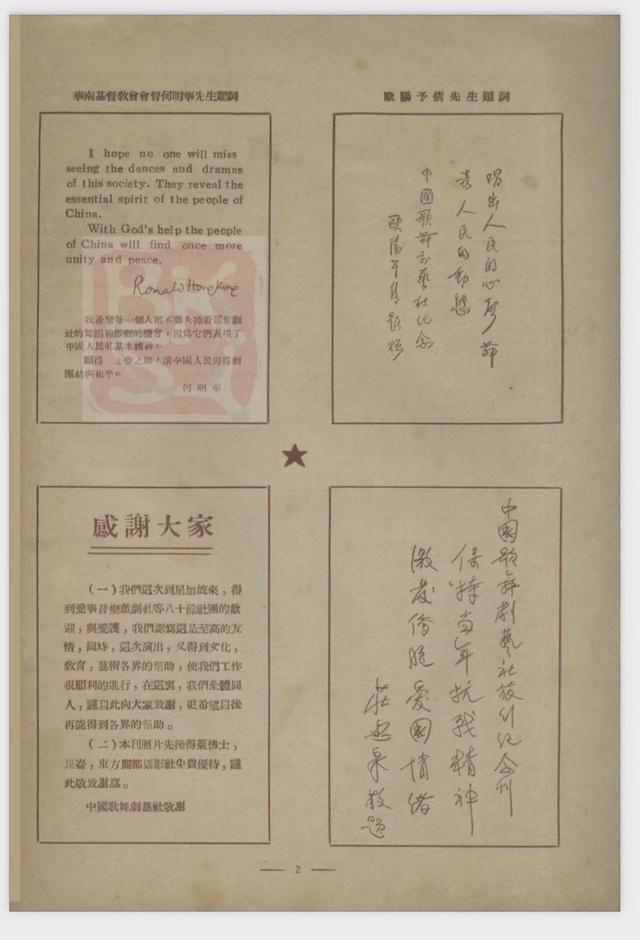 華南基督教會會督何明華先生題詞
I hope no one will miss
seeing the dances and dramas
of this society. They reveal the
essential spirit of the people of
China.
With God's help the people
of China will find once more
unity and peace.
Ronald Hongkong
我希望每一個人都不要失掉看這個劇
社的舞蹈和戲劇的機會,因為它們表現了
中國人民的基本精神。
願得 上帝之助,讓中國人民再得到
團結與和平。
何明華
歐陽予倩先生題詞
唱出人民的心聲舞
人民的動態
中國歌舞劇藝社紀念
歐陽予倩題
感謝大家
(一)我們這次到星加坡來,得
到愛華音樂戲劇社等八十餘社團的歡
迎,與愛護,我們認為這是至高的友
情,同時,這次演出,又得到文化,
敎育,藝術各界的幫助,使我們工作
很順利的進行,在這裏,我們全體同
人,謹以此向大家致謝,更希望以後
再能得到各界的幫助。
(二)本刊照片先後得萊佛士,
崑崙,東方麗都攝影社免費優待,謹
此敬致謝意。
中國歌舞劇藝社敬謝
中國歌舞劇藝社紀念刊
保持当年抗战精神
激发僑胞爱國情緒
莊惠泉敬題
2